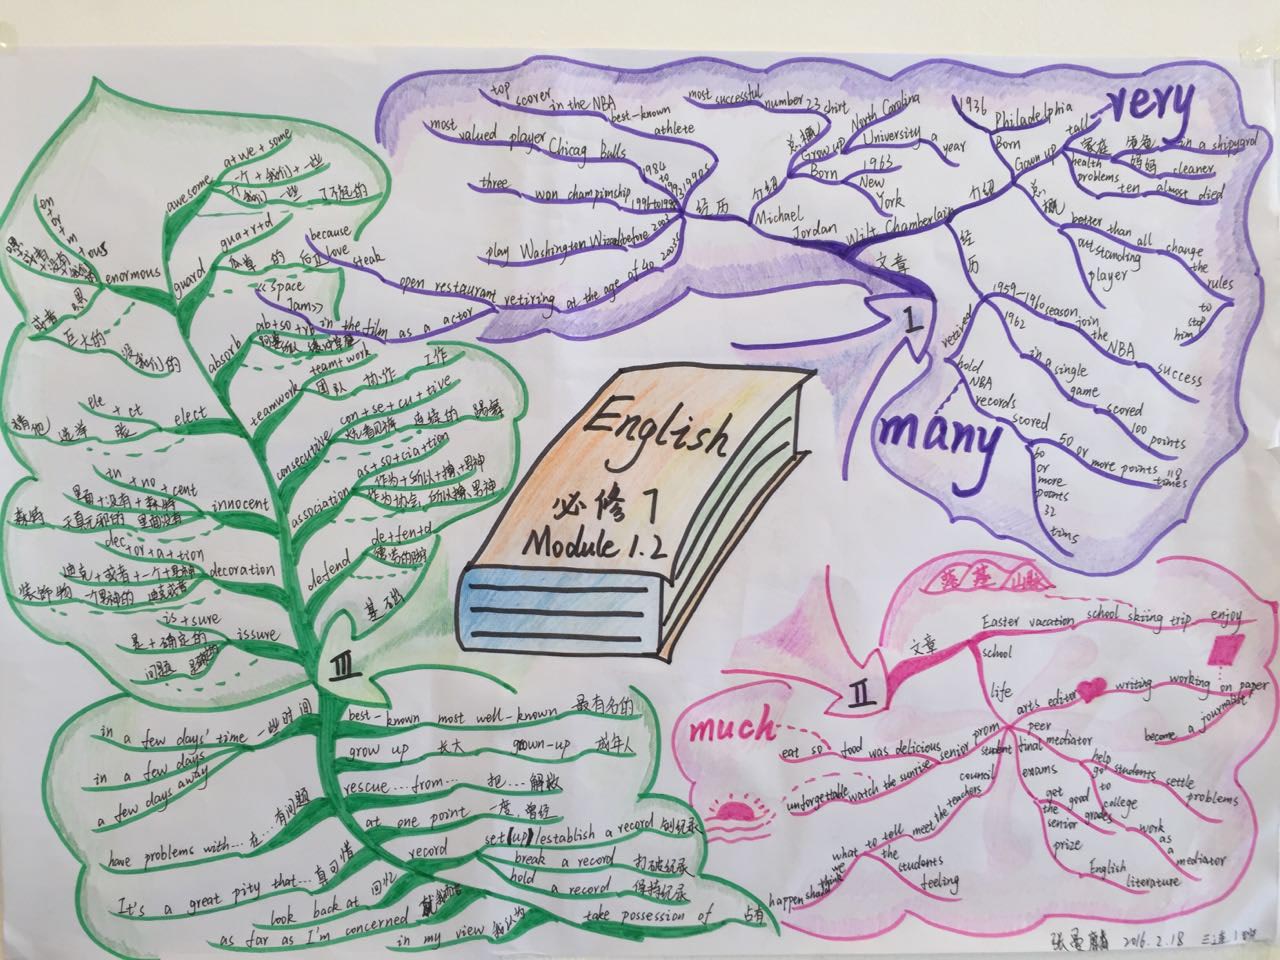 English
必修7
Module 1.2
1
文章
Michael
Jordan
介绍
总概
most successful
number 23 shirt
Grow up
North Carolina
University a
year
Born
1963
New
York
经历
1984
to
1990s
top
scorer
in the NBA
best-known
athlete
most
valued player
Chicag Bulls
three
won champimship
play Washington Wizard
before 2002
2003
retiring at the age of 40
open restaurant
steak
love
because
as a actor
in the film
《Space
Jam》
Wilt Chamberlain
介绍
Born
1936
Philadelphia
Grown up
tall
very
家庭
爸爸
in a shipyard
妈妈
cleaner
health
problems
ten
almost died
总概
better than all
change
the
rules
to
stop
him
outstanding
player
经
历
1959-1960 season
join
the
NBA
success
1962
in a single
game
scored
100
points
retired
hold
NBA
records
scored
50
or more points
118
times
60
or
more
points
32
tims
many
II
文章
Easter vacation
school skiing trip
enjoy
school
life
arts editor
writing
working
on paper
become
a journalist
peer
mediator
help
students
settle
problems
go
to
college
work
as
a
mediator
final
exams
get
good
the grades
senior
prize
English
literature
student
council
meet the teachers
what to tell
the
students
feeling
we
think
happen
senior
prom
food was delicious
eat so
much
watch the sunrise
unforgettable
III
基础
awesome
a+we+some
一个+我们+一些
了不起的
guard
gua+r+d
enormous
巨大的
absorb
ab+so+rb
teamwork
team+work
团队
协作
工作
consecutive
con+se+cu+tive
连续的
association
as+so+cia+tion
作为+所以+擦+男神
defend
de+fen+d
elect
ele
+ct
选举
innocent
in+no+cent
里面+没有+森特
天真无邪的
decoration
dec+or+a+tion
迪克+或者+一个+男神
装饰物
issure
is+sure
是+确定的
问题
in a few days' time
一些时间
in a few days
a few days away
have problems with...
在...有问题
It's a great pity that...
真可惜
look back at
回忆
as far as I'm concerned
就我而言
in my view
我认为
best-known
most well-known
最有名的
grow up
长大
grown-up
成年人
rescue...from...
把...解救
at one point
一度
曾经
record
set(up)/establish a record
创纪录
break a record
打破纪录
hold a record
保持纪录
take possession of
占有
2016.2.18